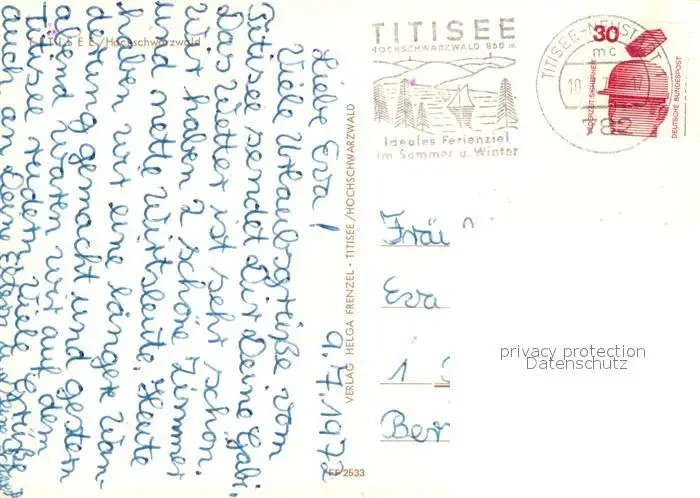 TITISEE/Hochschwarzwald
9.7.1972
Liebe Eva!
Viele Urlaubsgrüße vom
Titisee sendet Dir Deine Gabi.
Das Wetter ist sehr schön.
Wir haben 2 schöne Zimmer
und nette Wirtsleute. Heute
haben wir eine längere Wan-
derung gemacht und gestern
abend waren wir auf dem
Titisee rudern. Viele Grüße
auch an Deine Eltern
VERLAG HELGA FRENZEL · TITISEE/HOCHSCHWARZWALD
FF 2533
TITISEE
HOCHSCHWARZWALD 860 m
Ideales Ferienziel
im Sommer u. Winter
TITISEE-NEUSTADT
mc
30
JEDERZEIT SICHERHEIT
DEUTSCHE BUNDESPOST
Fräu
Eva
1
Ber
privacy protection
Datenschutz